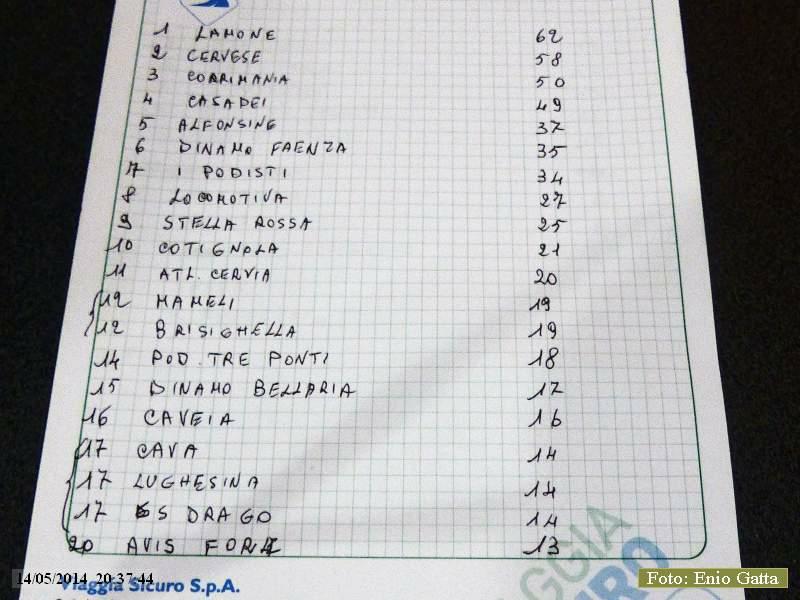 1 LAMONE 62
2 CERVESE 58
3 CORRIMANIA 50
4 CASADEI 49
5 ALFONSINE 37
6 DINAMO FAENZA 35
7 I PODISTI 34
8 LOCOMOTIVA 27
9 STELLA ROSSA 25
10 COTIGNOLA 21
11 ATL. CERVIA 20
12 MAMELI 19
12 BRISIGHELLA 19
14 POD. TRE PONTI 18
15 DINAMO BELLARIA 17
16 CAVEIA 16
17 CAVA 14
17 LUGHESINA 14
17 GS DRAGO 14
20 AVIS FORLI 13
14/05/2014 20:37:44
Viaggia Sicuro S.p.A.
Foto: Enio Gatta